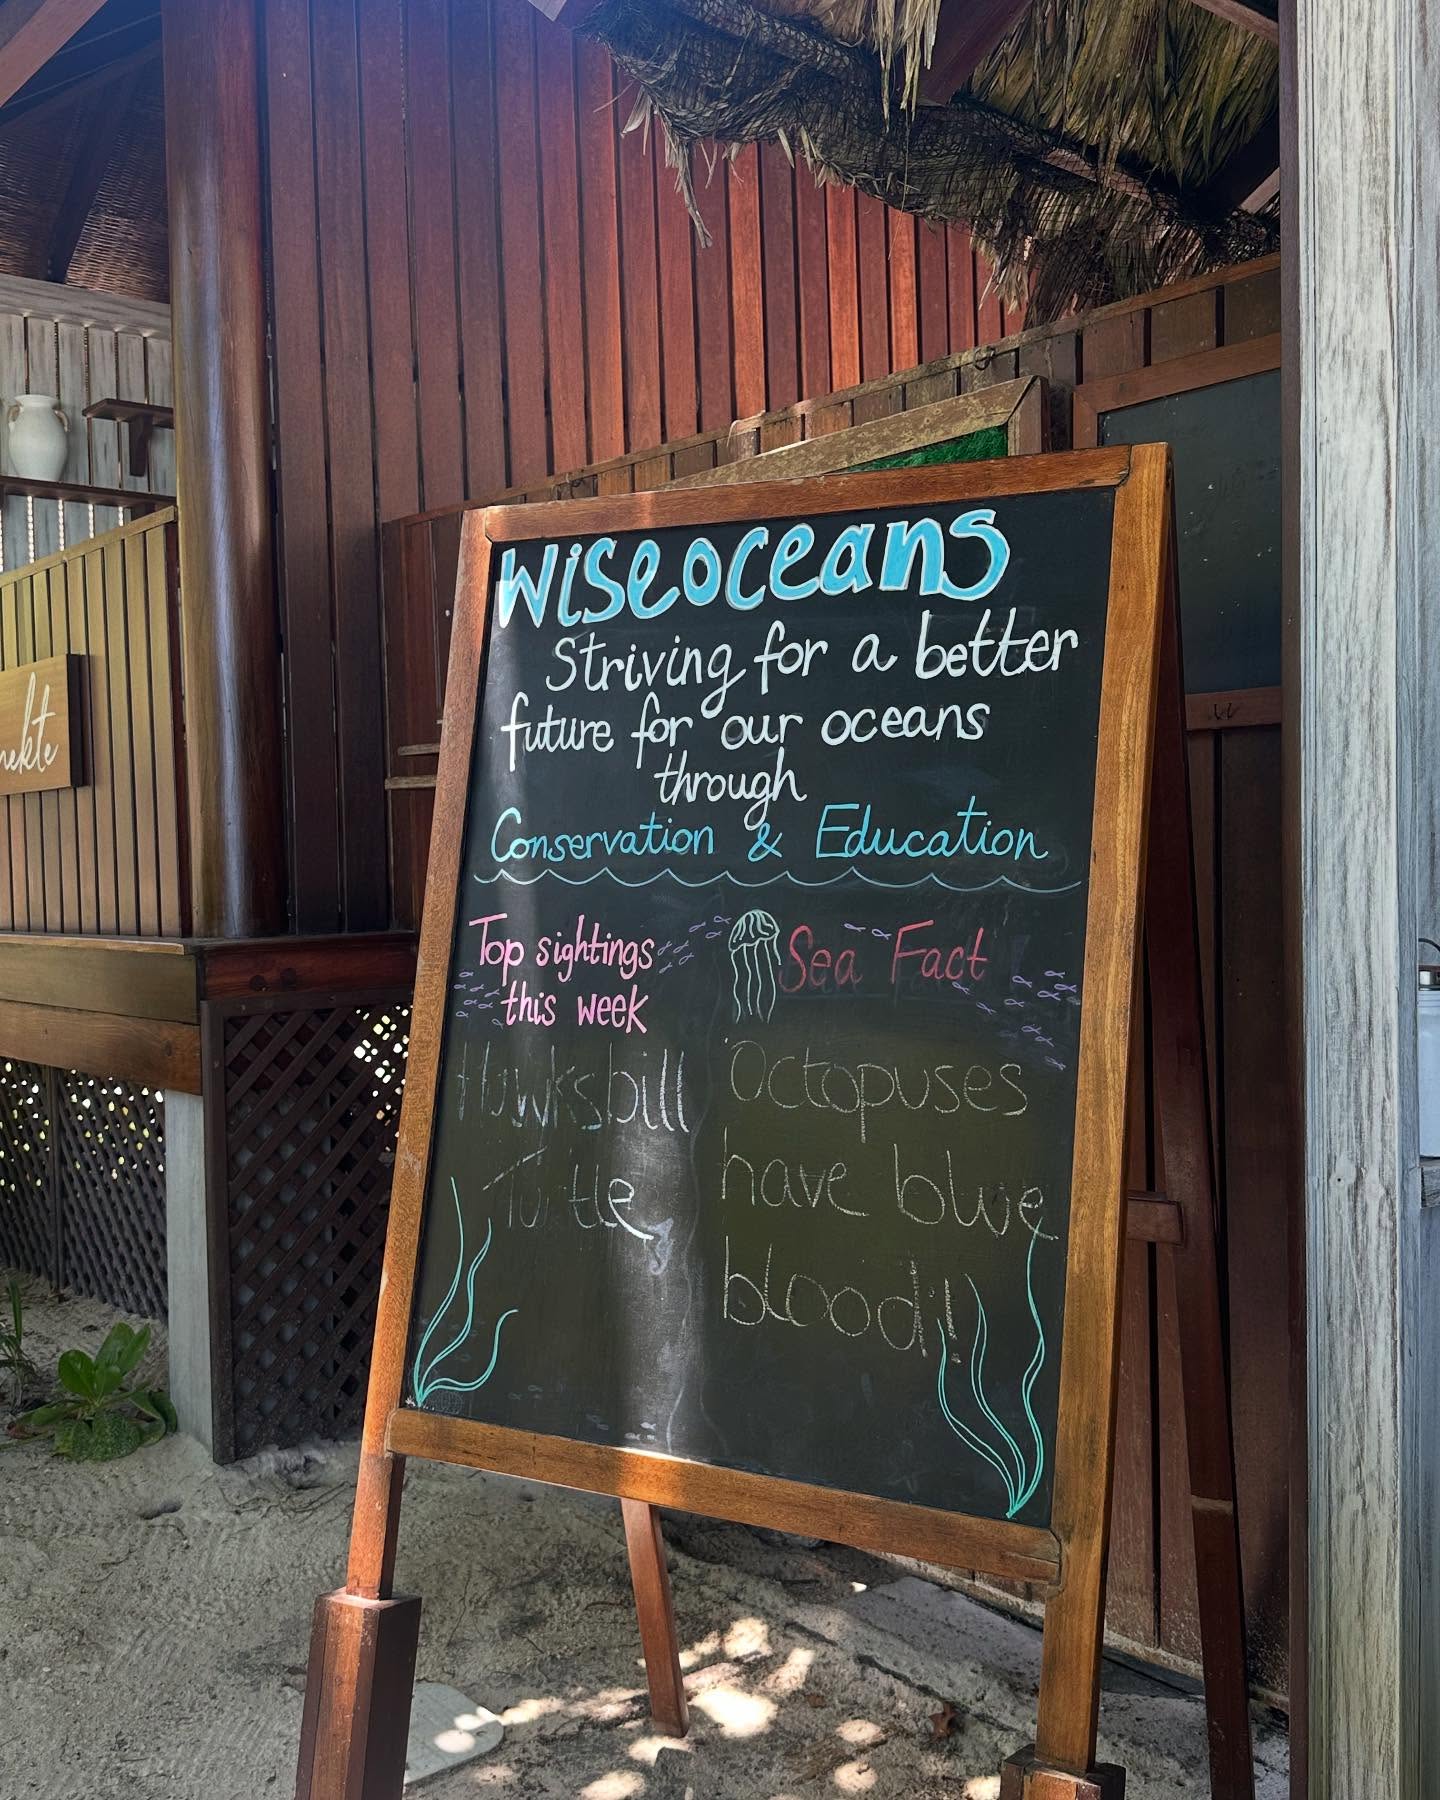 Wiseoceans
Striving for a better
future for our oceans
through
Conservation & Education
Top sightings
this week
Hawksbill
Turtle
Sea Fact
Octopuses
have blue
blood!!